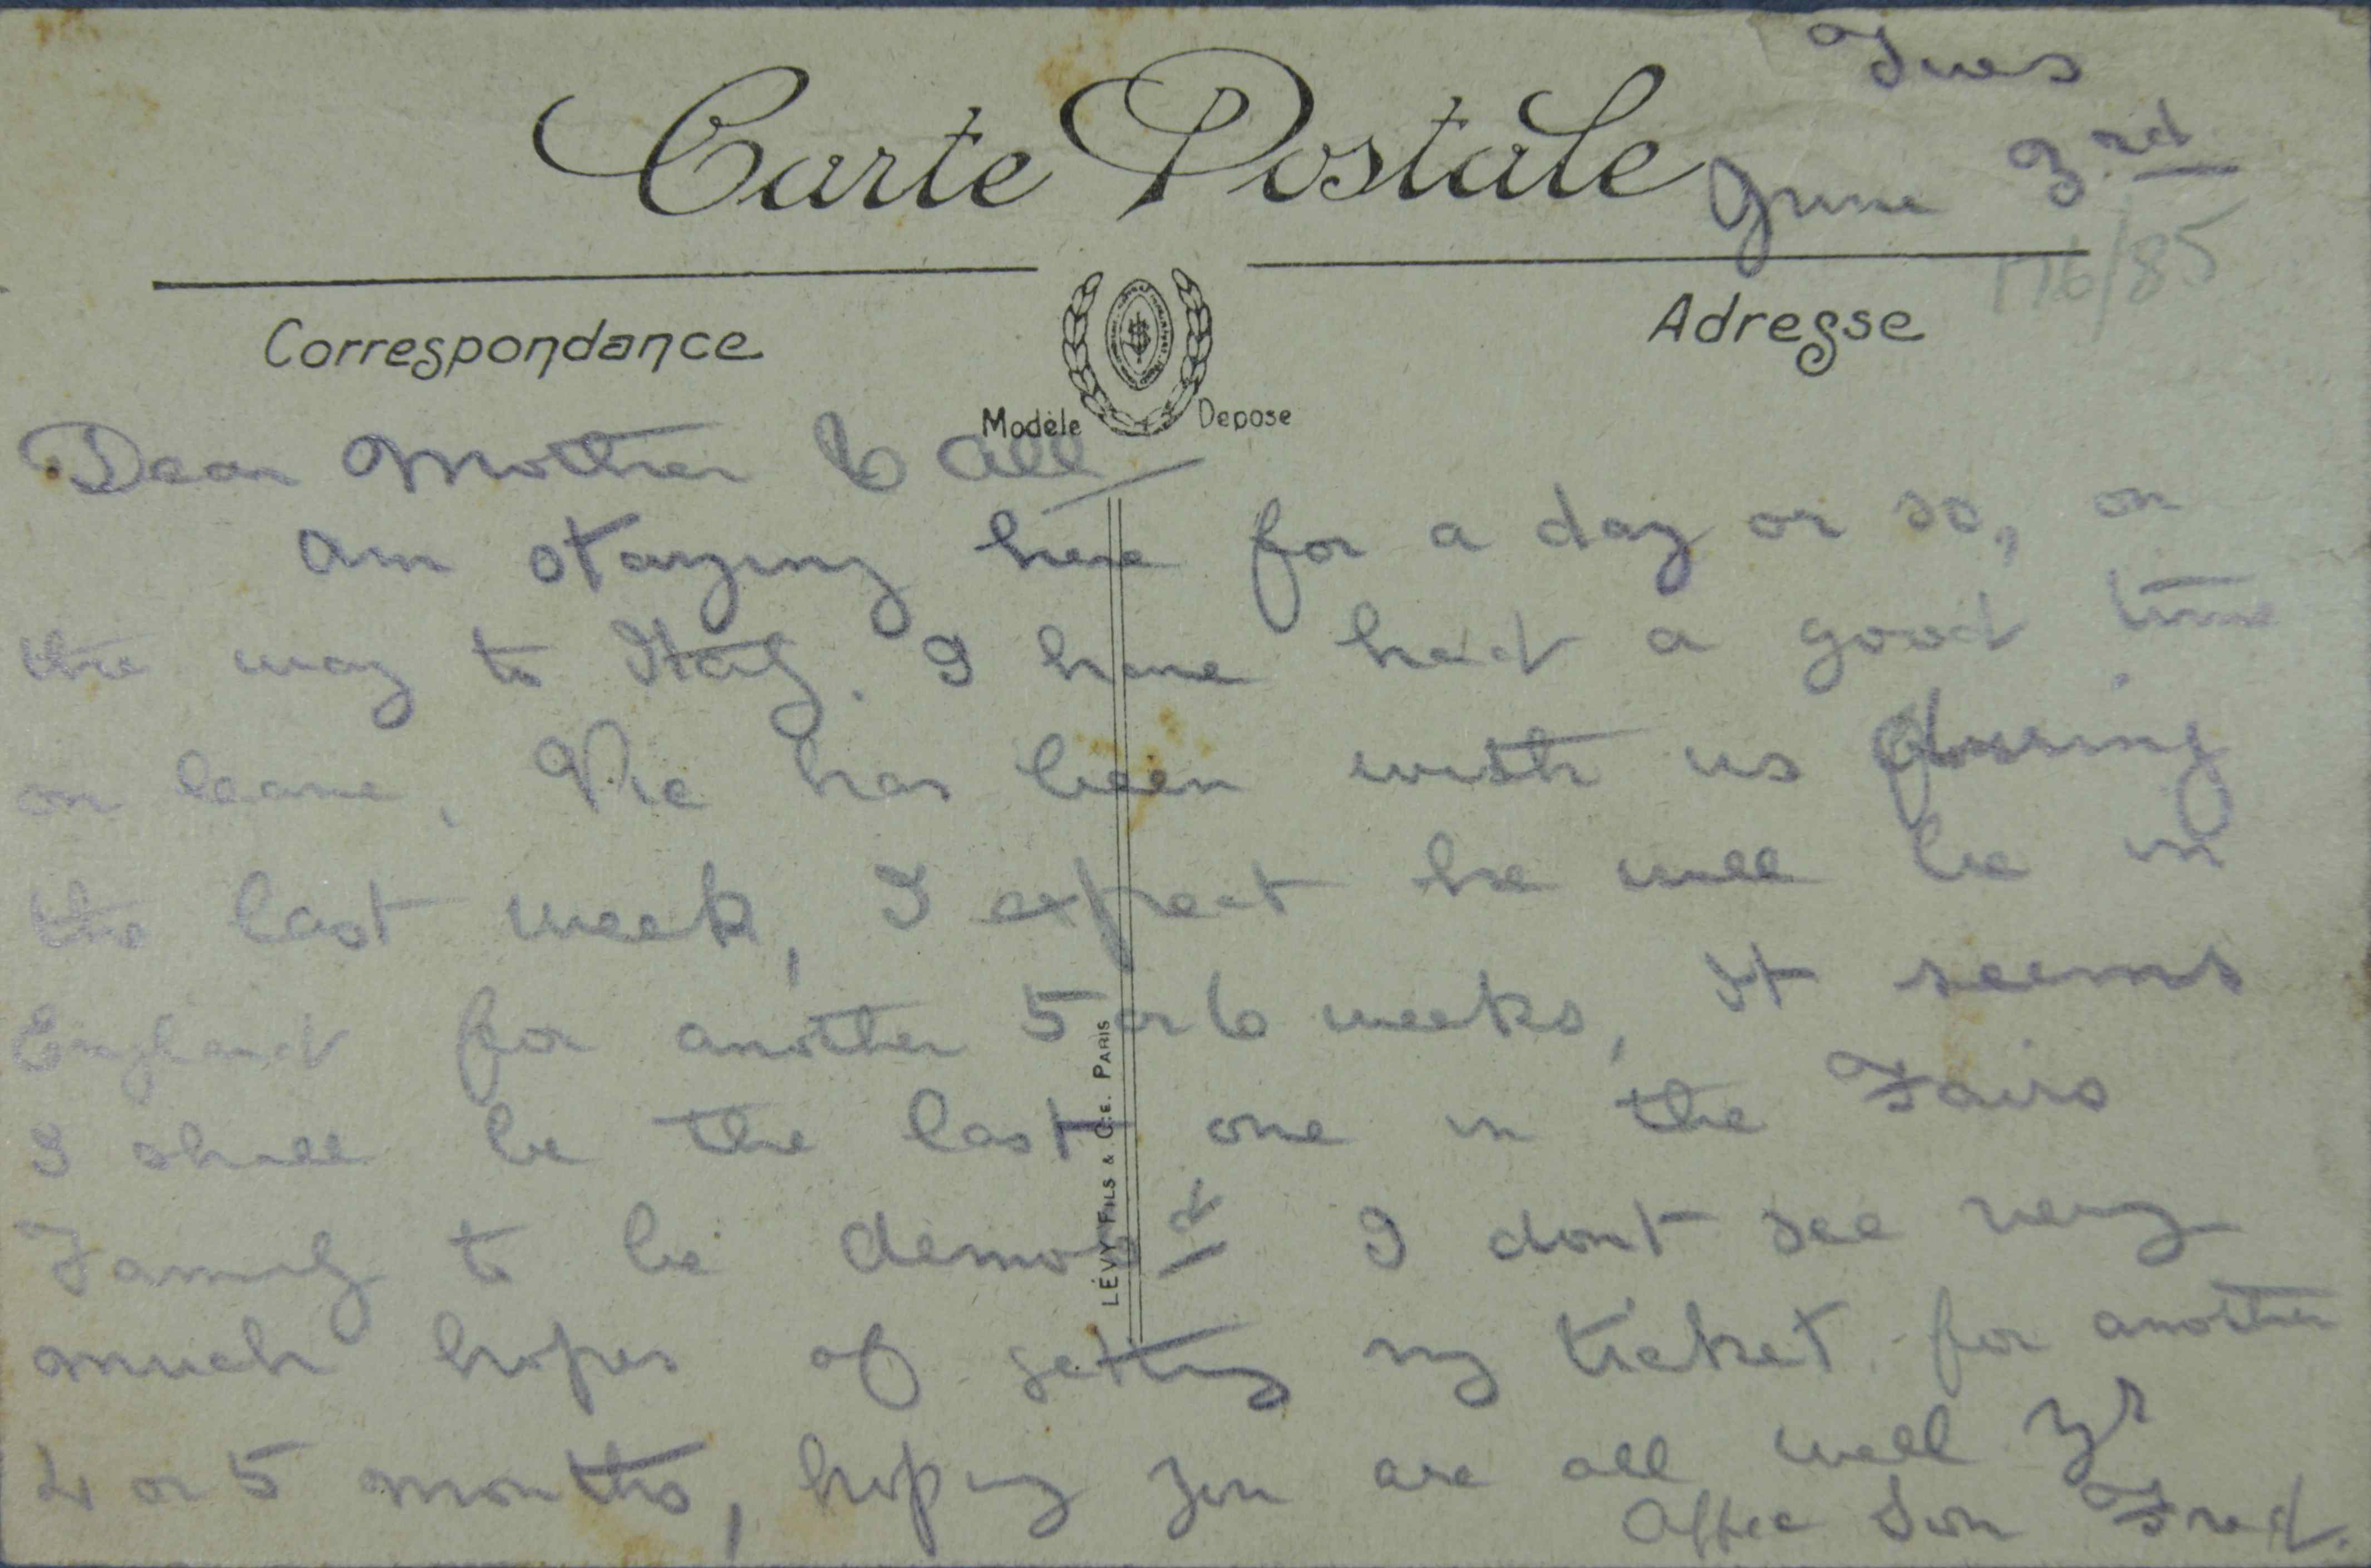 Tues
Carte Postale
June 3.rd
176/85
Correspondance
Adresse
Modèle Deposé
Dear Mother & all
Am staying here for a day or so, on
the way to Italy. I have had a good time
on leave. Vic has been with us during
the last week, I expect he will be in
England for another 5 or 6 weeks, It seems
I shall be the last one in the Fairs
Family to be demobd I dont see very
much hopes of getting my ticket for another
4 or 5 months, hoping you are all well Yr
Affec Son Fred.
LÉVY FILS & CIE. PARIS